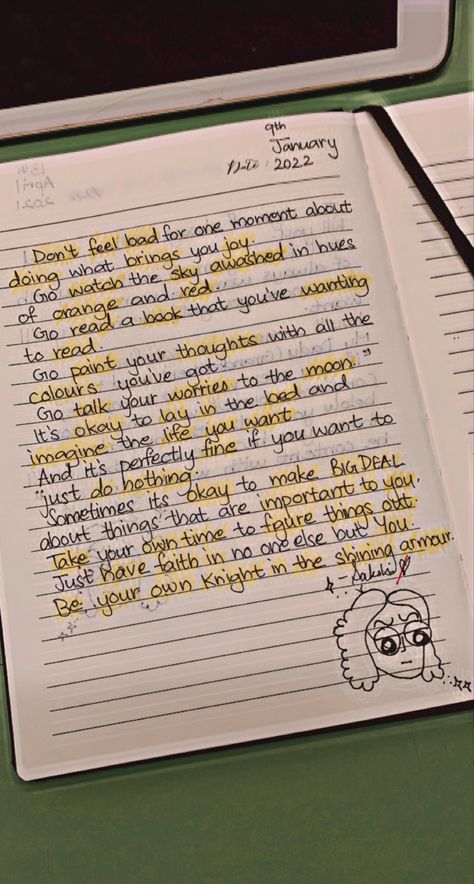 9th
January
Date: 2022
13th
April
2021
Don't feel bad for one moment about
doing what brings you joy.
Go watch the sky awashed in hues
of orange and red.
Go read a book that you've wanting
to read.
Go paint your thoughts with all the
colours you've got.
Go talk your worries to the moon."
It's okay to lay in the bed and
imagine the life you want.
And it's perfectly fine if you want to
just do nothing.
Sometimes its okay to make BIG DEAL
about things that are important to you.
Take your own time to figure things out.
Just have faith in no one else but You.
Be your own Knight in the shining armour.